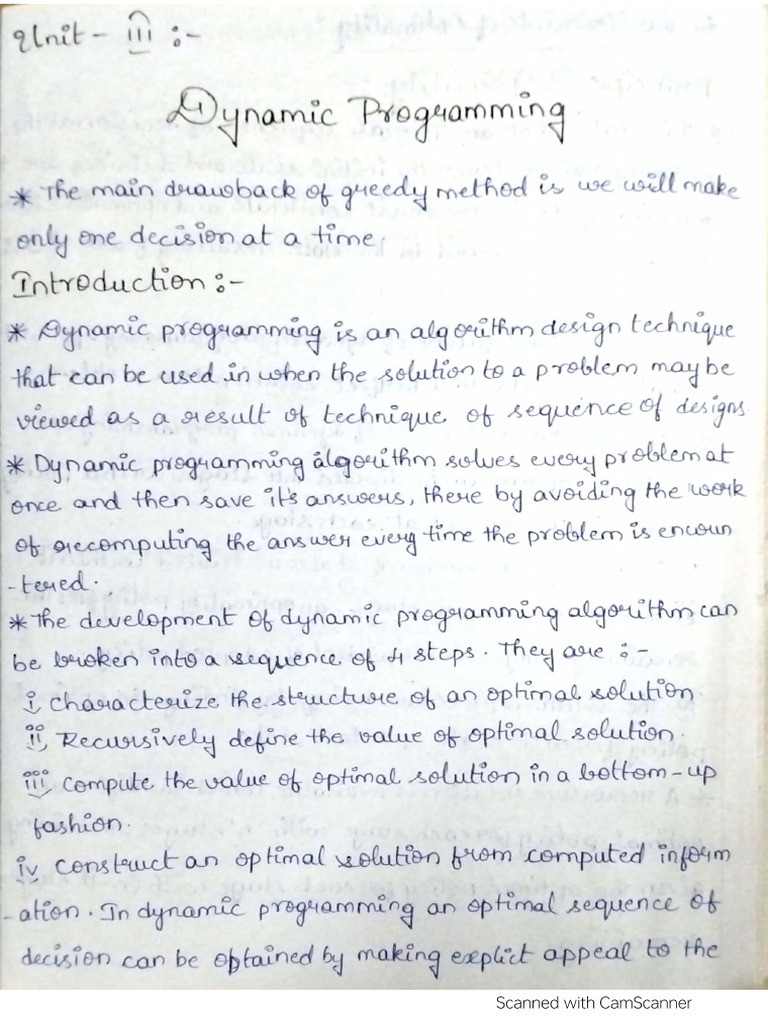 Unit - iii :-
Dynamic Programming
* The main drawback of greedy method is we will make
only one decision at a time.
Introduction :-
* Dynamic programming is an algorithm design technique
that can be used in when the solution to a problem may be
viewed as a result of technique of sequence of designs.
* Dynamic programming algorithm solves every problem at
once and then save it's answers, there by avoiding the work
of recomputing the answer every time the problem is encoun
-tered.
* The development of dynamic programming algorithm can
be broken into a sequence of 4 steps. They are :-
i, characterize the structure of an optimal solution
ii, Recursively define the value of optimal solution.
iii, compute the value of optimal solution in a bottom-up
fashion.
iv, construct an optimal solution from computed inform
-ation. In dynamic programming an optimal sequence of
decision can be obtained by making explict appeal to the
Scanned with CamScanner